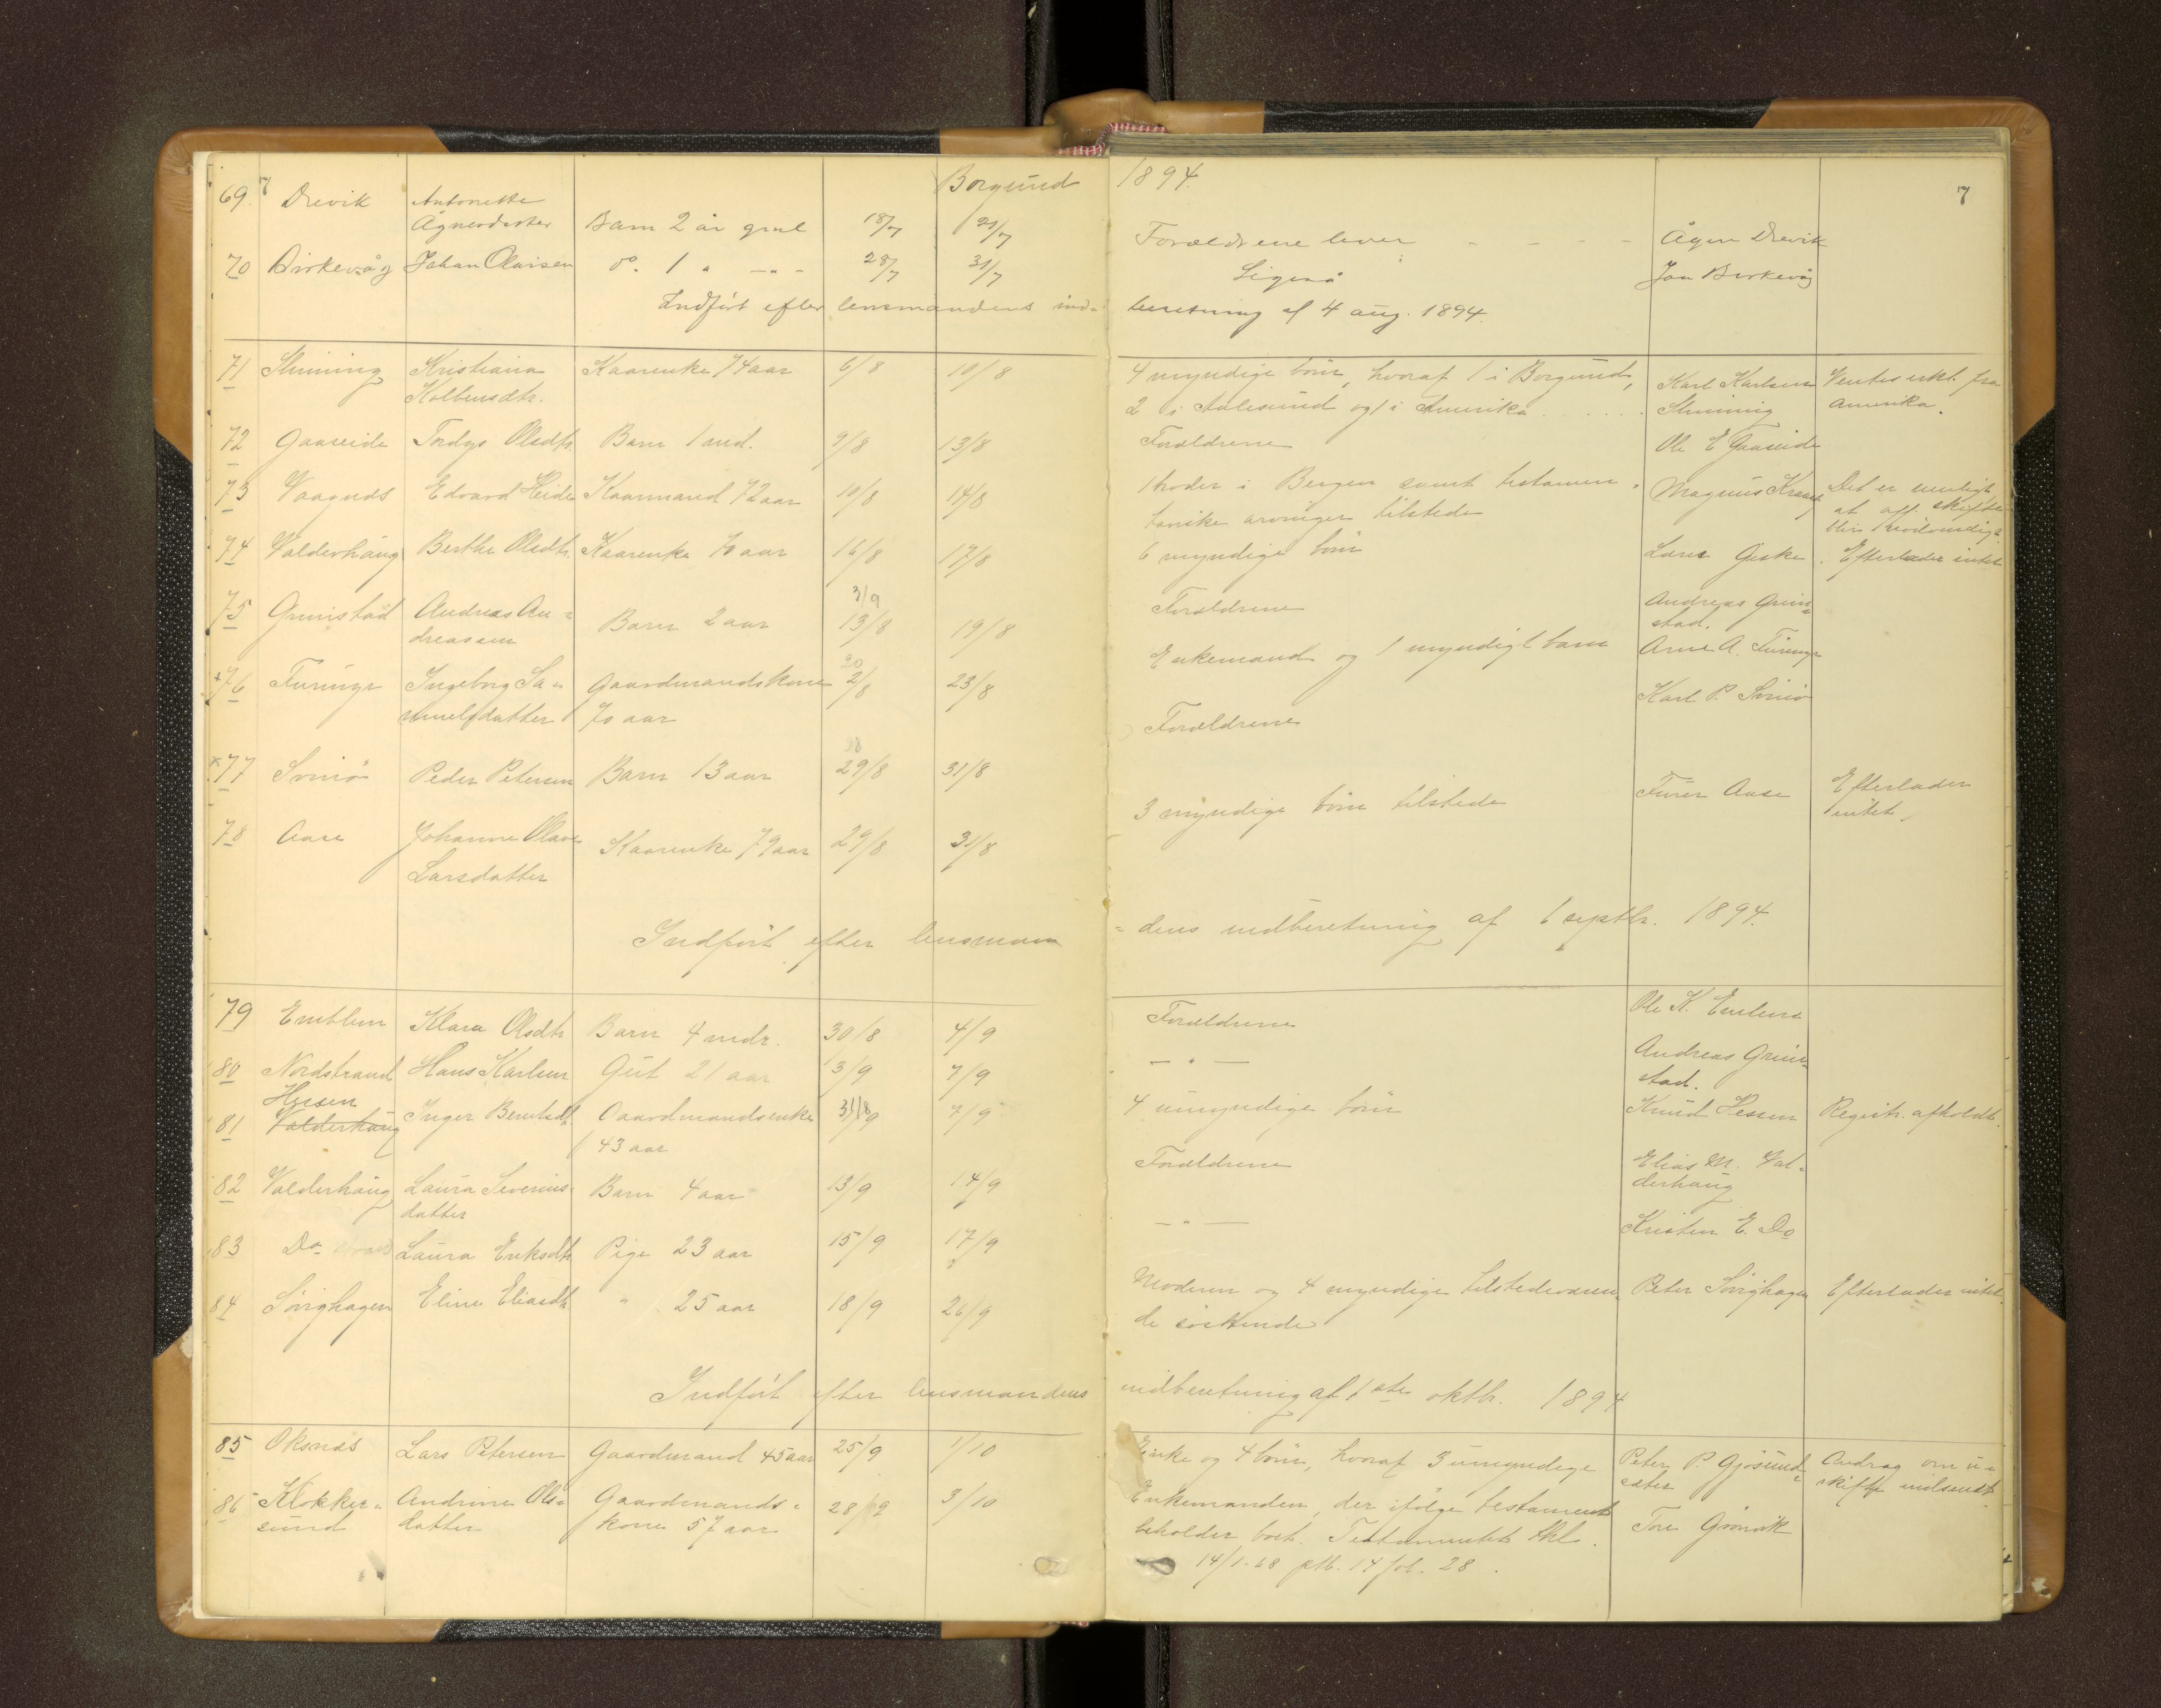 Borgund
1894.
7
69. Drevik Antonette
Ågnesdatter Barn 2 år gml 18/7 21/7 Forældrene lever - - - - Ågen Drevik
70 Birkevåg Johan Olaisen do. 1 " - " - 28/7 31/7 Ligeså Jon Birkevåg
Indført efter lensmandens ind= beretning af 4 aug. 1894.
71 Slinning Kristiana Kaarenke 74 aar 6/8 10/8 4 myndige børn, hvoraf 1 i Borgund, Karl Karlsen Ventes erkl. fra
Kolbensdtr. 2 i Aalesund og 1 i Amerika Slinning Amerika.
72 Gaaseide Tordys Olsdtr. Barn 1 md. 9/8 13/8 Forældrene Ole E Gaaseide
73 Vaagnæs Edvard Heide Kaarmand 72 aar 10/8 14/8 1 broder i Bergen samt testamen= Magnus
tariske arvinger tilstede Det er muligt
at off. skifte
blir nødvendigt
74 Valderhaug Berthe Olsdtr. Kaarenke 70 aar 16/8 17/8 6 myndige børn Lars Giske Efterlader intet
3/9
75 Grimstad Andreas An= Barn 2 aar 13/8 19/8 Forældrene Andreas Grim=
dreassen stad.
20
76 Furmyr Ingeborg Sa= Gaardmandskone 2/8 23/8 Enkemand og 1 myndigt barn Arne A. Furmyr
muelsdatter 70 aar
28
77 Svinø Peder Petersen Barn 13 aar 29/8 31/8 Forældrene Karl P. Svinø
78 Aase Johanne Olave Kaarenke 79 aar 29/8 31/8 3 myndige børn tilstede Aase Efterlader
Larsdatter intet
Indført efter lensman =dens indberetning af 1 septbr. 1894.
79 Emblem Klara Olsdtr Barn 4 mdr. 30/8 4/9 Forældrene Ole K. Emblem
80 Nordstrand Hans Karlsen Gut 21 aar 3/9 7/9 — " — Andreas Grim=
stad.
Hessen
81 Valderhaug Inger Berntsdt. Gaardmandsenke 31/8 9 7/9 4 umyndige børn Knud Hessen Registr. afholdt.
43 aar
82 Valderhaug Laura Severins= Barn 4 aar 13/9 14/9 Forældrene Elias M. Val=
datter derhaug
83 Do Laura Eriksdtr Pige 23 aar 15/9 17/9 — " — Kristen E. Do
84 Sørighagen Eline Eliasdtr " 25 aar 18/9 26/9 Moderen og 4 myndige tilstedeværen= Peter Sørighagen Efterlader intet.
de søskende
Indført efter lensmandens indberetning af 1ste oktbr. 1894
85 Oksnæs Lars Petersen Gaardmand 45 aar 25/9 1/10 Enke og 4 børn, hvoraf 3 umyndige Peter P. Gjøsund= Andrag om u=
sæter skifte indsendt.
86 Klokker= Andrine Ols= Gaardmands= 28/9 3/10 Enkemanden, der ifølge testament Tore Grønvik
sund datter kone 57 aar beholder boet. Testamentet thl.
14/1-68 ptb. 14 fol. 28.